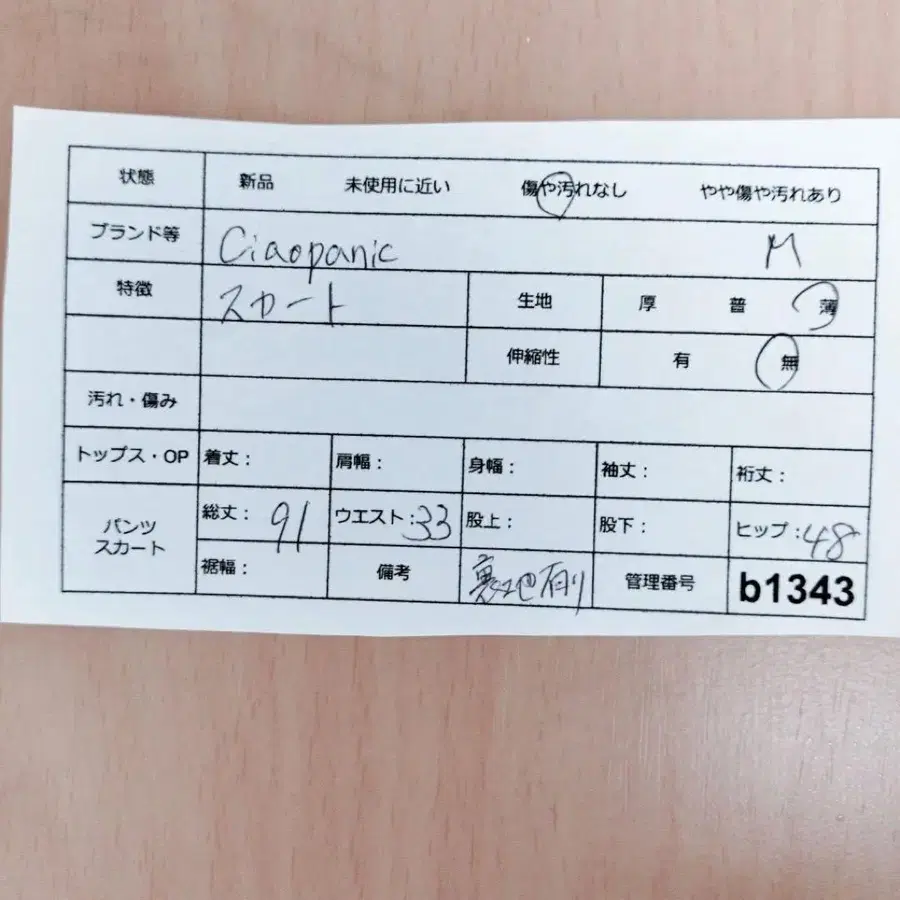 状態 新品 未使用に近い 傷や汚れなし やや傷や汚れあり
ブランド等 Ciaopanic M
特徴 スカート 生地 厚 普 薄
伸縮性 有 無
汚れ・傷み
トップス・OP 着丈: 肩幅: 身幅: 袖丈: 裄丈:
パンツ スカート 総丈: 91 ウエスト: 33 股上: 股下: ヒップ: 48
裾幅: 備考 裏地有り 管理番号 b1343